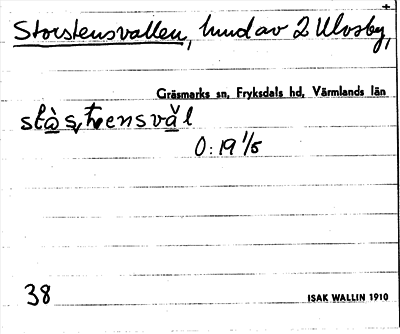 +
Storstensvallen, hmd av 2 Ulvsby,
Gräsmarks sn, Fryksdals hd, Värmlands län
O:19 1/5
38
ISAK WALLIN 1910